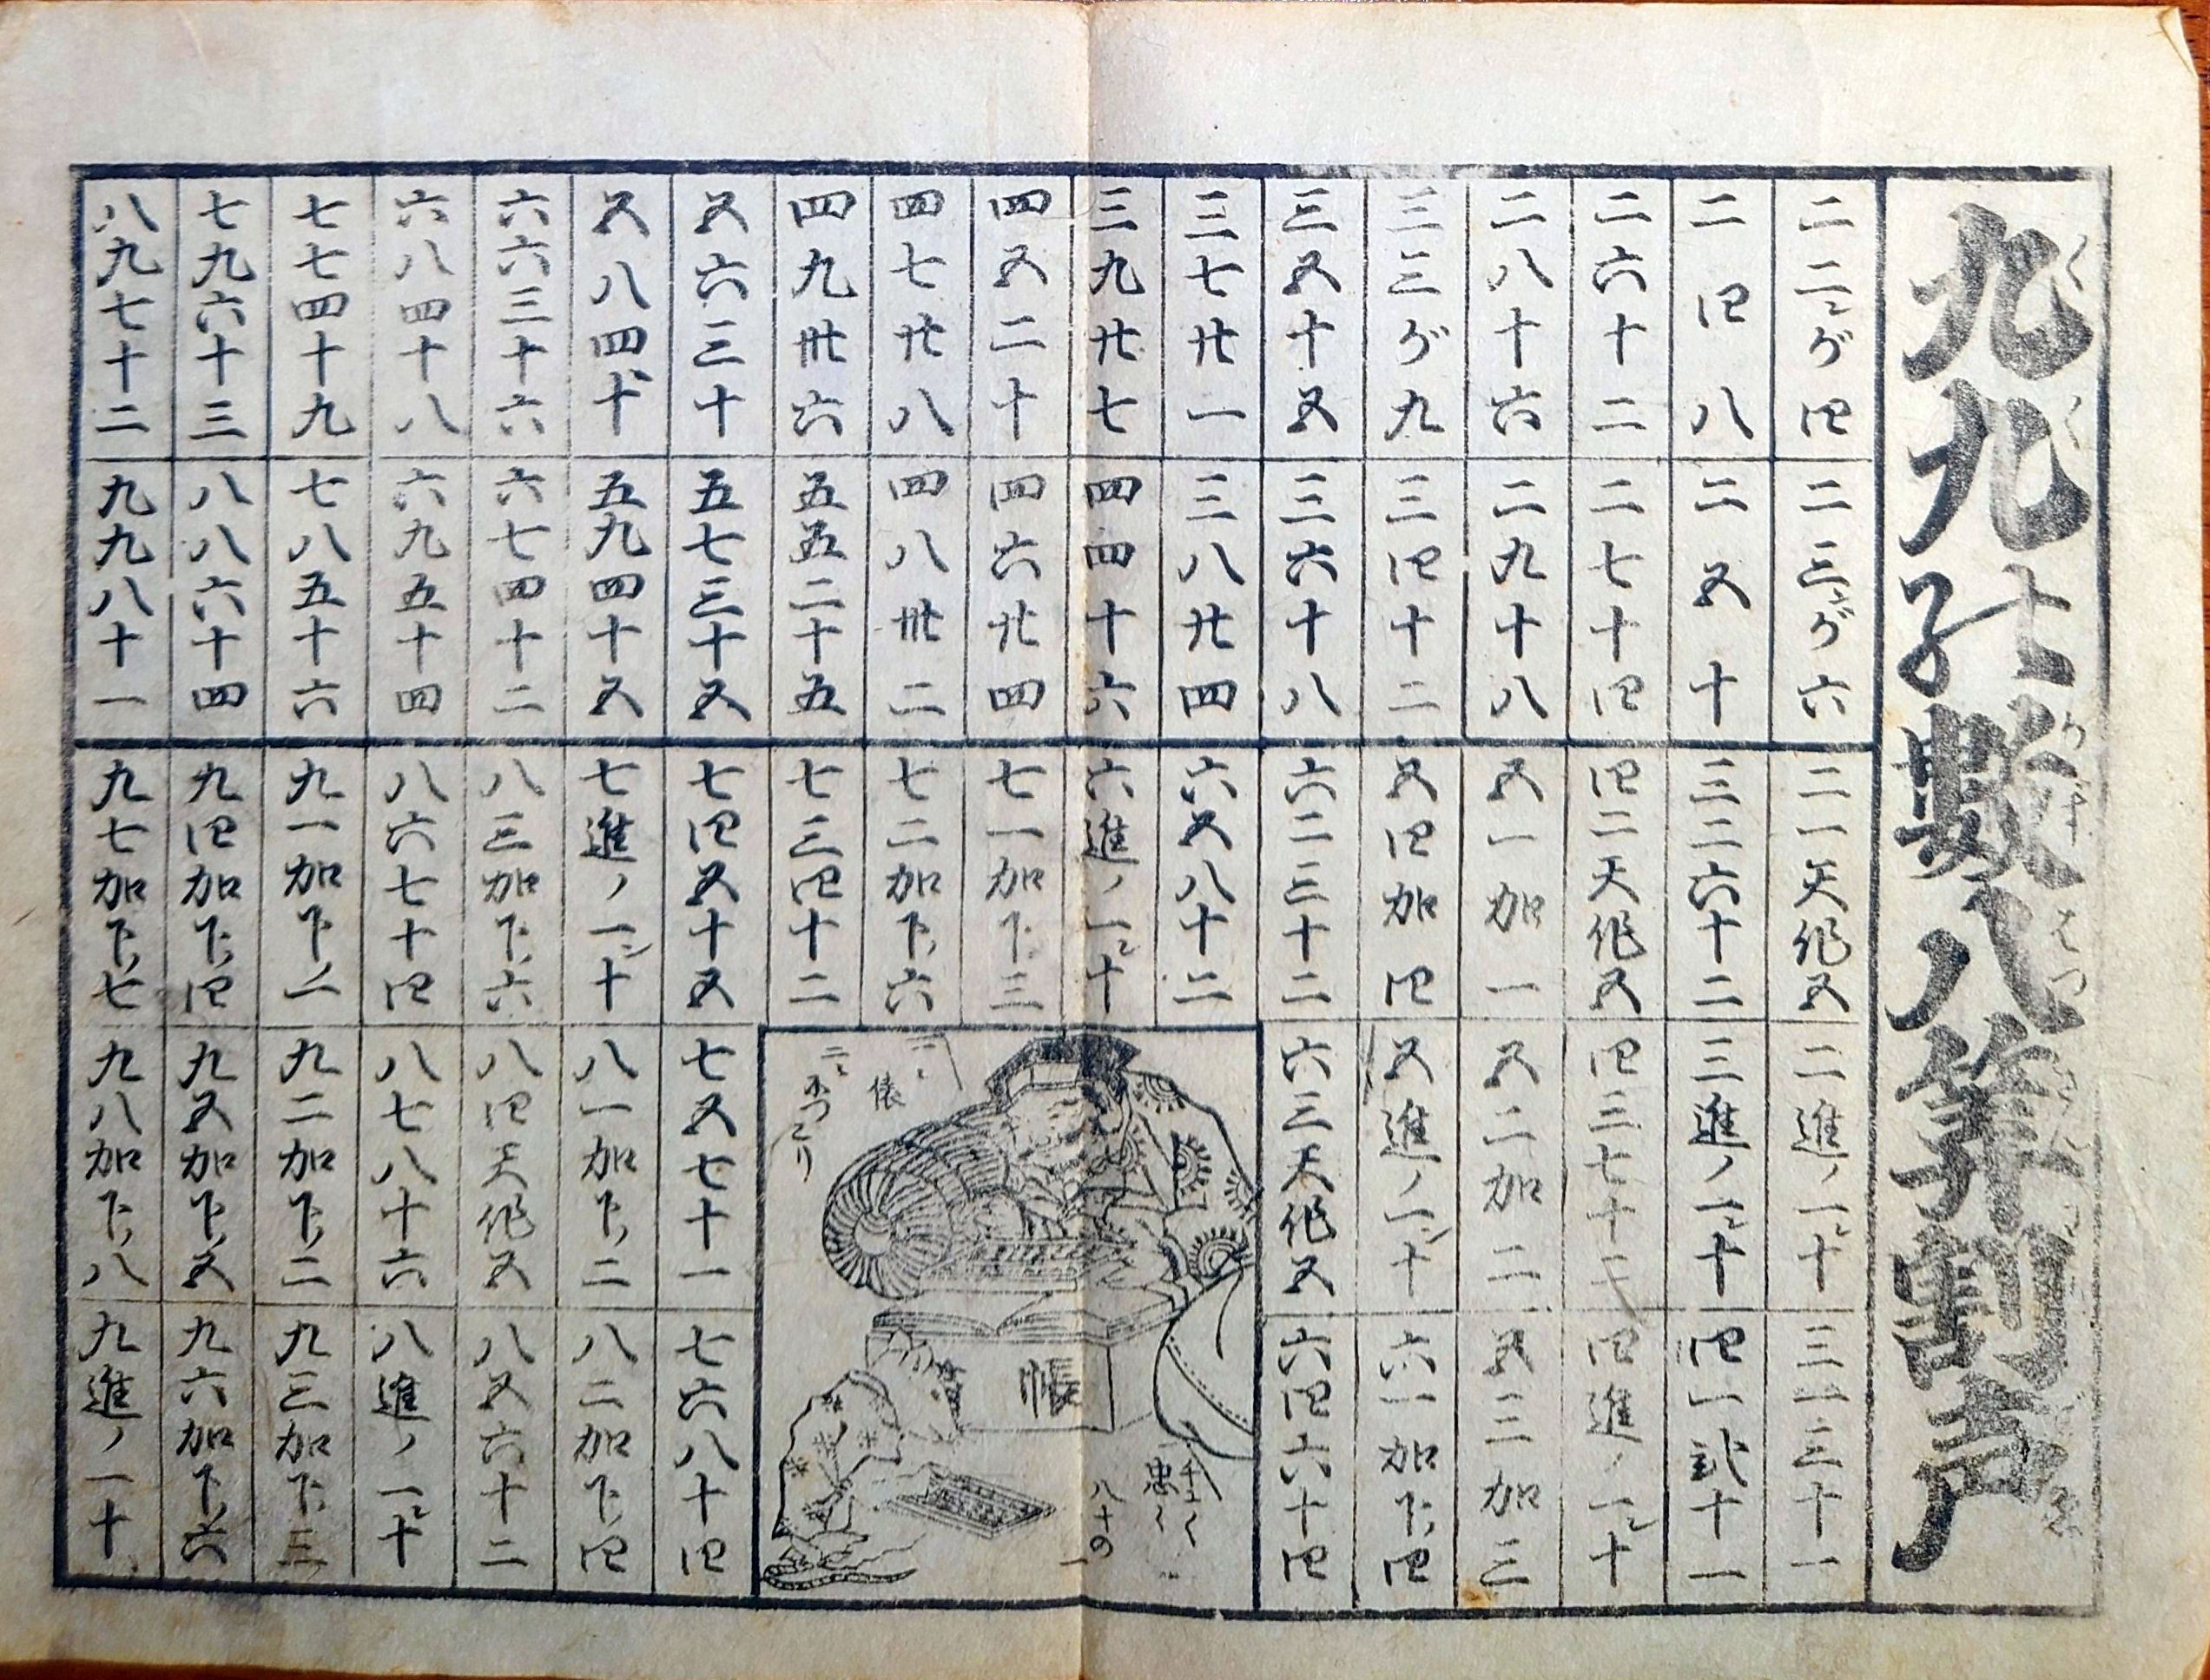 九九
数八算割声
二二ガ四
二三ガ六
二四八
二五十
二六十二
二七十四
二八十六
二九十八
三三ガ九
三四十二
三五十五
三六十八
三七廿一
三八廿四
三九廿七
四四十六
四五二十
四六廿四
四七廿八
四八卅二
四九卅六
五五二十五
五六三十
五七三十五
五八四十
五九四十五
六六三十六
六七四十二
六八四十八
六九五十四
七七四十九
七八五十六
七九六十三
八八六十四
八九七十二
九九八十一
二一天作五
二進ノ一十
三一三十一
三二六十二
三進ノ一十
四一弐十一
四二天作五
四三七十二
四進ノ一十
五一加一
五二加二
五三加三
五四加四
五進ノ一十
六一加下四
六二三十二
六三天作五
六四六十四
六五八十二
六進ノ一十
七一加下三
七二加下六
七三四十二
七四五十五
七五七十一
七六八十四
七進ノ一十
八一加下二
八二加下四
八三加下六
八四天作五
八五六十二
八六七十四
八七八十六
八進ノ一十
九一加下一
九二加下二
九三加下三
九四加下四
九五加下五
九六加下六
九七加下七
九八加下八
九進ノ一十
俵
帳
八十の